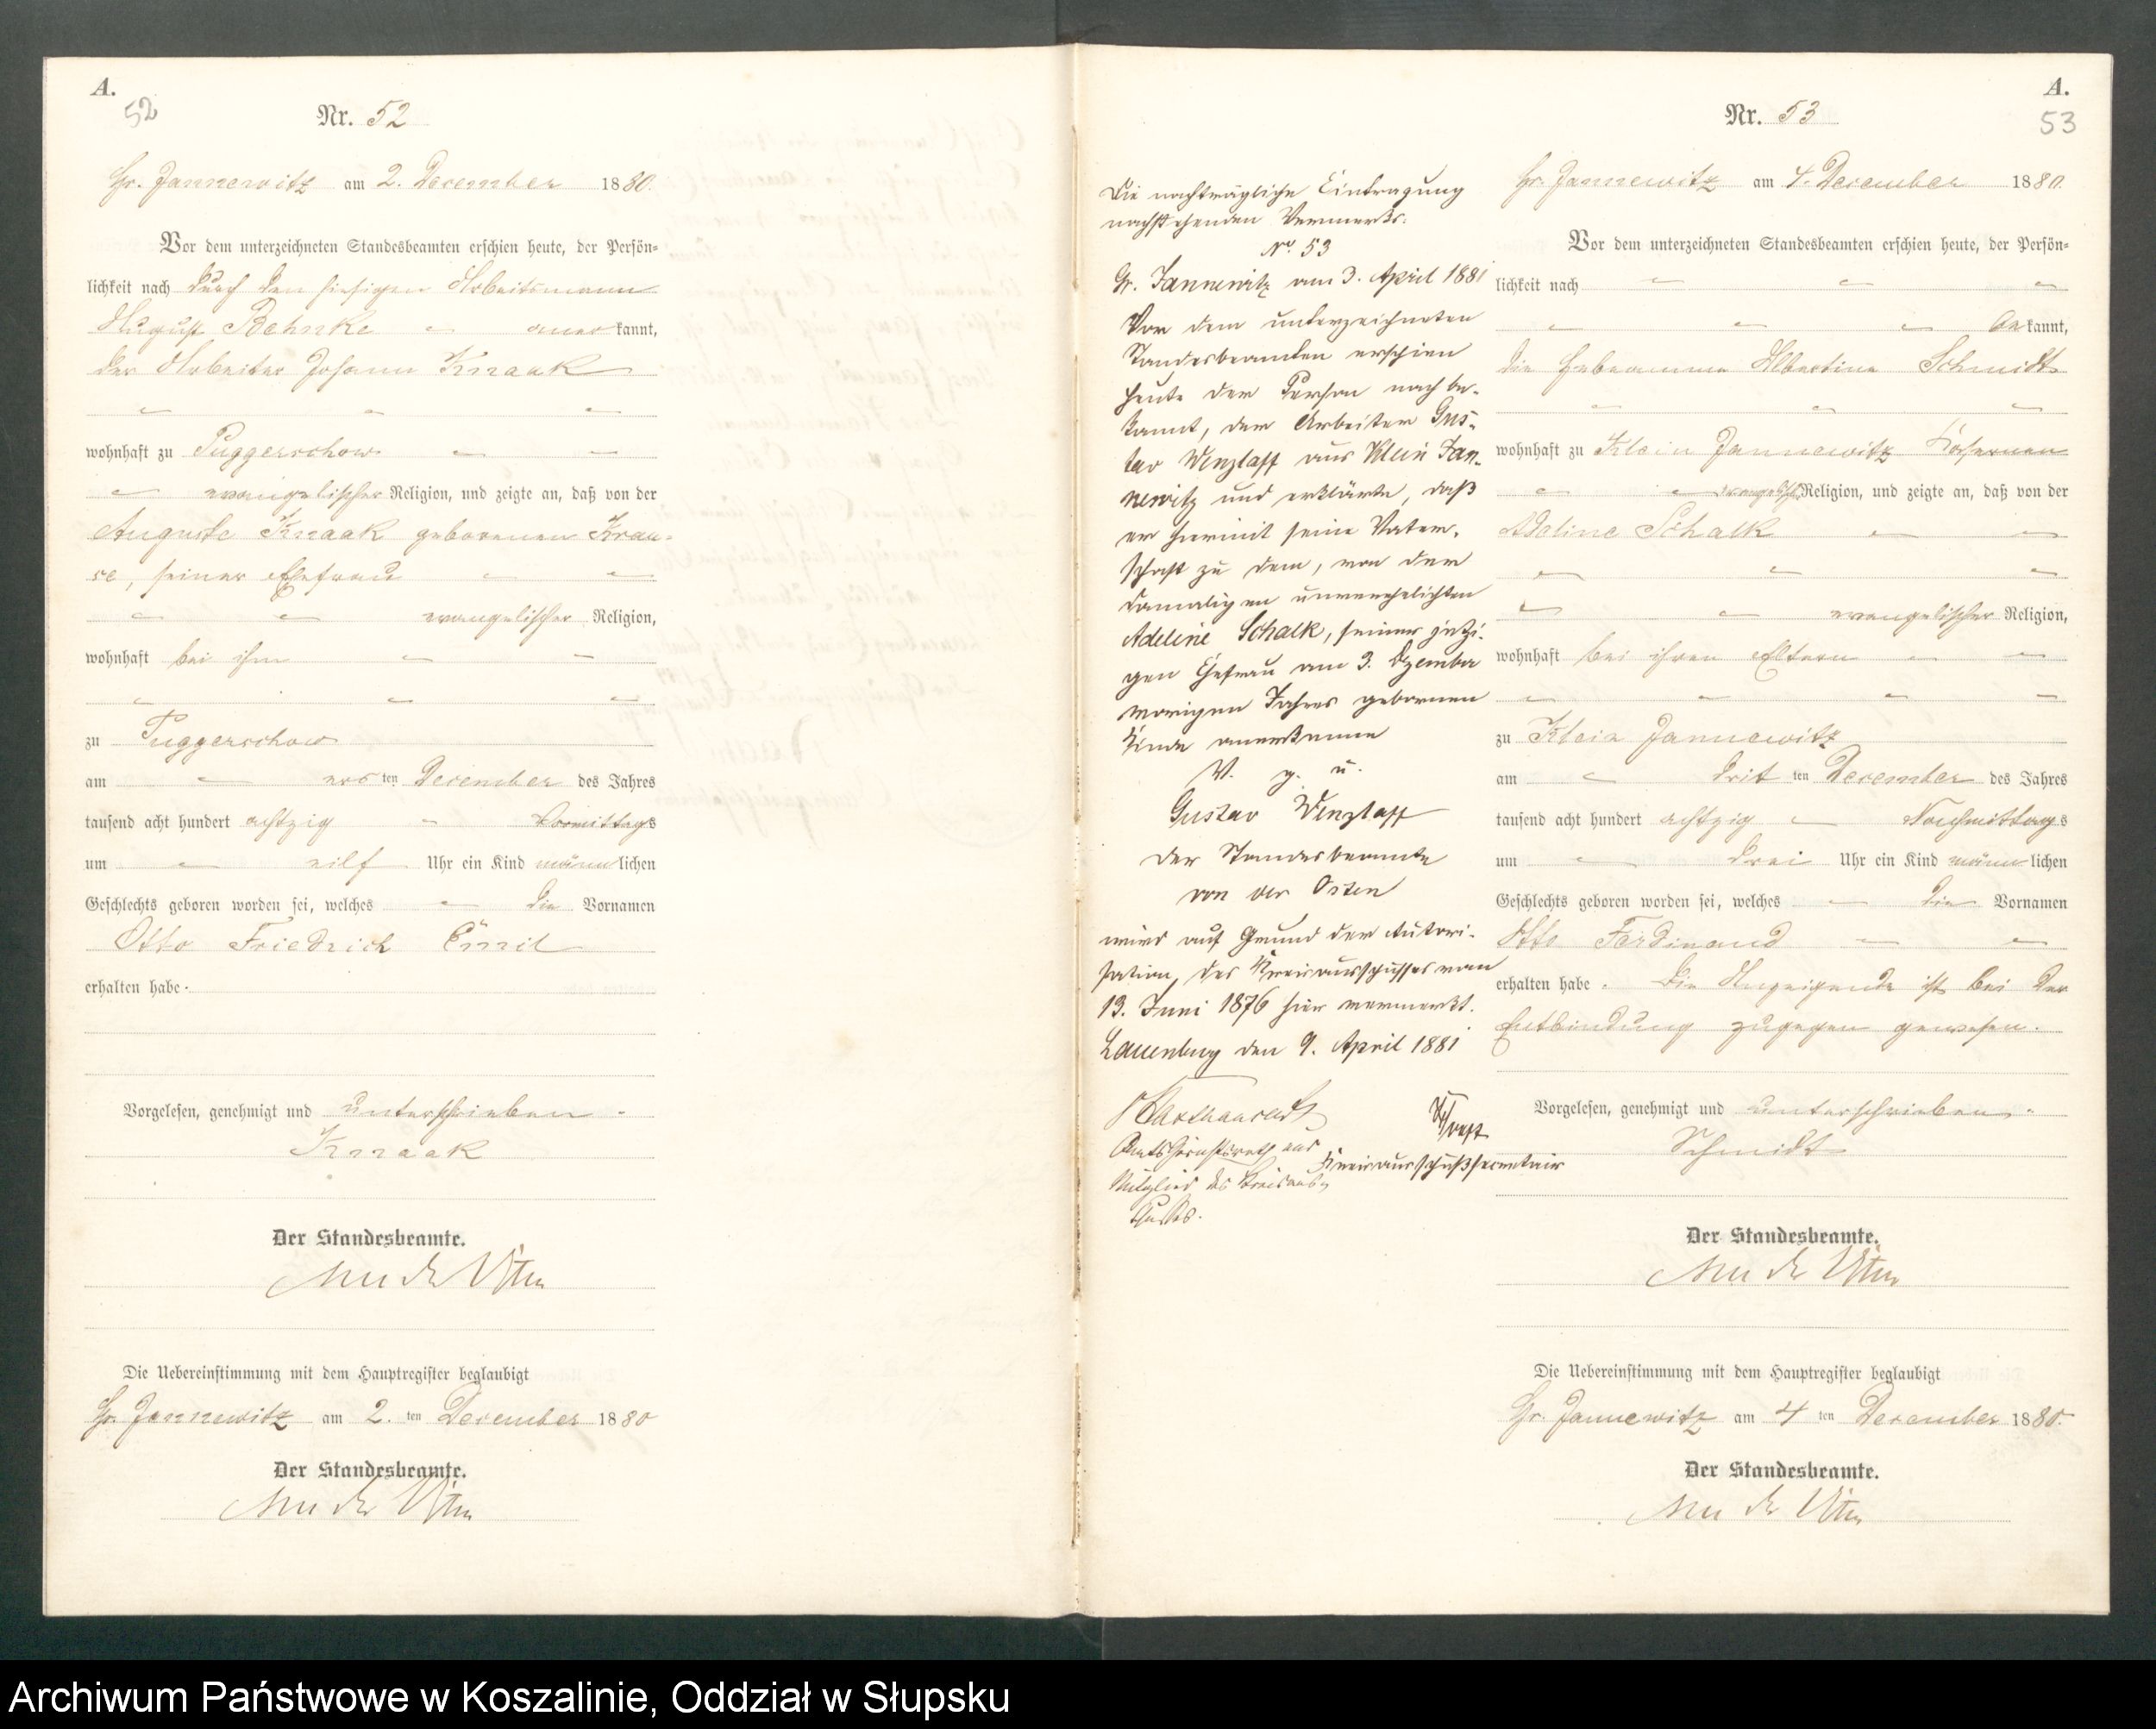 A.
52
Nr. 52
Gr. Jannewitz am 2. December 1880.
Vor dem unterzeichneten Standesbeamten erschien heute, der Persön=
lichkeit nach durch den hiesigen Arbeitsmann
August Behnke anerkannt,
der Arbeiter Johann Knaak
wohnhaft zu Puggerschow
evangelischer Religion, und zeigte an, daß von der
Auguste Knaak geborenen Krau=
se, seiner Ehefrau
evangelischer Religion,
wohnhaft bei ihm
zu Puggerschow
am ersten December des Jahres
tausend acht hundert achtzig Vormittags
um eilf Uhr ein Kind männlichen
Geschlechts geboren worden sei, welches die Vornamen
Otto Friedrich Emil
erhalten habe.
Vorgelesen, genehmigt und unterschrieben.
Knaak
Der Standesbeamte.
von der Osten
Die Uebereinstimmung mit dem Hauptregister beglaubigt
Gr. Jannewitz am 2. ten December 1880
Der Standesbeamte.
von der Osten
Die nachträgliche Eintragung
nachstehenden Vermerks:
No. 53
Gr. Jannewitz am 3. April 1881
Vor dem unterzeichneten
Standesbeamten erschien
heute der Person nach be-
kannt, der Arbeiter Gus-
tav Wenzlaff aus Klein Jan-
newitz und erklärte, daß
er hiermit seine Vater-
schaft zu dem, von der
damaligen unverehelichten
Adeline Schalk, seiner jetzi-
gen Ehefrau am 3. Dezember
vorigen Jahres gebornen
Kinde anerkenne
V. g. u.
Gustav Wenzlaff
Der Standesbeamte
von der Osten
wird auf Grund der Autori-
sation, des Kreisausschusses vom
13. Juni 1876 hier vermerkt.
Lauenburg den 9. April 1881
Amtsgerichtsrath und
Mitglied des Kreisaus-
schusses.
Kreisausschußsecretair
A.
53
Nr. 53
Gr. Jannewitz am 4. December 1880.
Vor dem unterzeichneten Standesbeamten erschien heute, der Persön=
lichkeit nach
bekannt,
die Hebeamme Albertine Schmidt
wohnhaft zu Klein Jannewitz
evangelisch. Religion, und zeigte an, daß von der
Adeline Schalk
evangelischer Religion,
wohnhaft bei ihren Eltern
zu Klein Jannewitz
am dritten December des Jahres
tausend acht hundert achtzig Nachmittags
um drei Uhr ein Kind männlichen
Geschlechts geboren worden sei, welches die Vornamen
Otto Ferdinand
erhalten habe. Die Anzeigende ist bei der
Entbindung zugegen gewesen.
Vorgelesen, genehmigt und unterschrieben.
Schmidt
Der Standesbeamte.
von der Osten
Die Uebereinstimmung mit dem Hauptregister beglaubigt
Gr. Jannewitz am 4 ten December 1880.
Der Standesbeamte.
von der Osten
Archiwum Państwowe w Koszalinie, Oddział w Słupsku